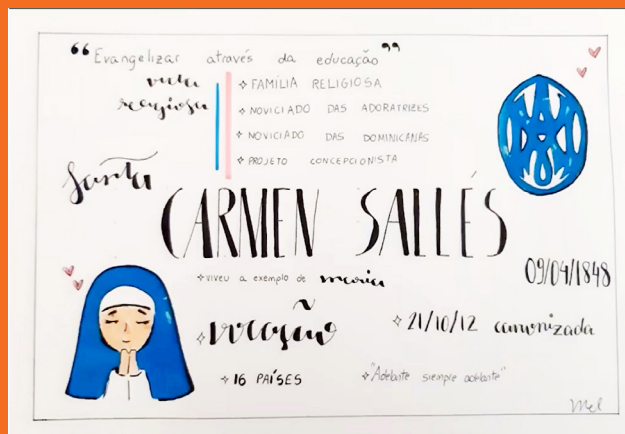 "Evangelizar através da educação"
vida
religiosa
✧ FAMÍLIA RELIGIOSA
✧ NOVICIADO DAS ADORATRIZES
✧ NOVICIADO DAS DOMINICANAS
✧ PROJETO CONCEPCIONISTA
Santa
CARMEN SALLÉS
09/04/1848
✧ viveu a exemplo de maria
✧ vocação
✧ 21/10/12 canonizada
✧ 16 PAÍSES
✧ "Adelante siempre adelante"
Mel